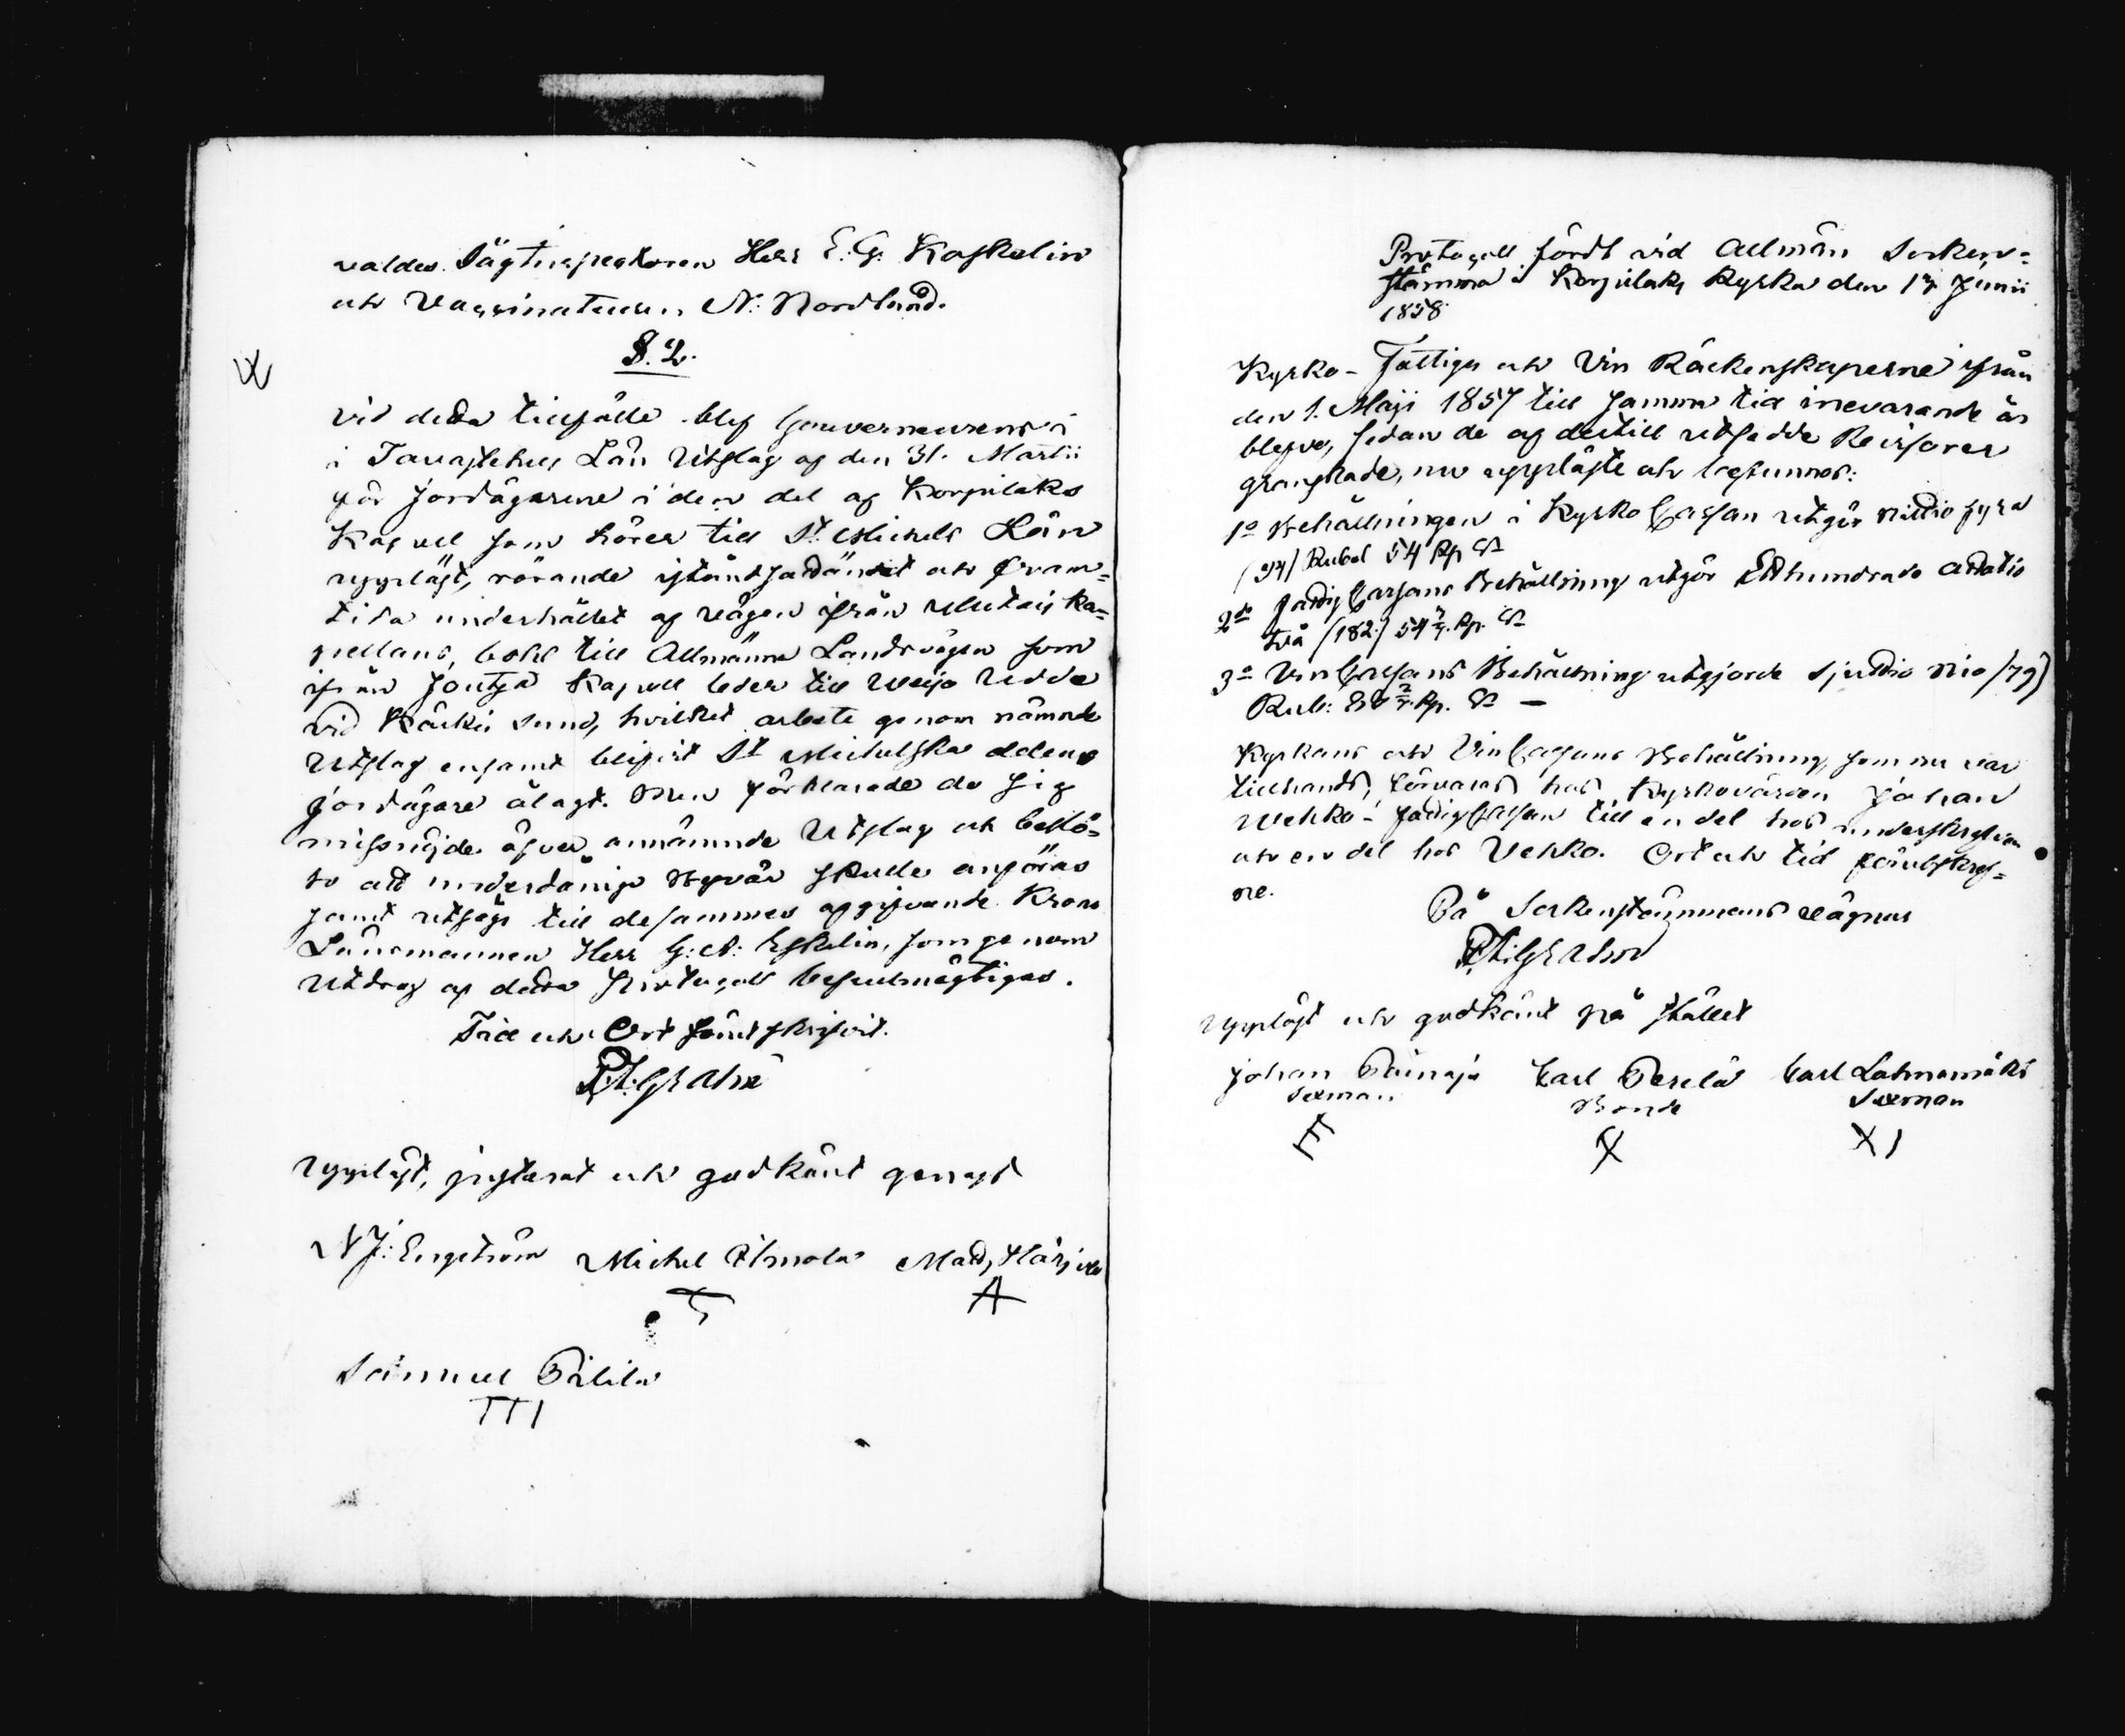 valdes Sågtinspectoren Herr E. G. Kaskelin
och Vaccinateuren N. Nordlund.
§. 2.
Vid detta tillfälle blef Gouverneurens i
i Tavastehus Län Utslag af den 31. Martii
för Jordägarene i den del af Korpilaks
Kapell som hörer till St Michels Län
uppläst, rörande iståndsättandet och fram=
tida underhållet af vägen ifrån Multais Ka=
pellans bohl till Allmänna Landsvägen som
ifrån Joutsa Kapell leder till
vid Kärkis sund, hvilket arbete genom nämnde
Utslag ensamt blifvit St Michelska delens
jordägare ålagt. Men förklarade de sig
missnöjde öfver omnämnde Utslag och beslö=
to att underdåniga Besvär skulle anföras
samt utsågs till desammes afgifvande Krono
Länsmannen Herr G. A. Eskelin, som genom
Utdrag af detta Protocoll befullmägtigas.
Tid och Ort som förut skrifvit.
Uppläst, justerat och godkänt genast
N J: Engström Michel Ilmola Matts Härjes
T A
Samuel Pilila
T T I
Protocoll fördt vid Allmän Socken=
stämma i Korpilaks Kyrka den 13 Junii
1858.
Kyrko- Fattigs och Vin Räckenskaperne ifrån
den 1. Maji 1857 till samma tid innevarande år
blefvo, sedan de af dertill utsedde Revisorer
granskade, nu uppläste och befunnos:
1o Behållningen i Kyrko Cassan utgör nittio fyra
(94) Rubel 54 Kp Sr
2do Fattig Cassans Behållning utgör Etthundrade åttatio
två (182) 54 2/7 Kp. Sr
3o Vin Cassans Behållning utgjorde sjuttio nio (79)
Rub: 80 2/7 Kp. Sr —
Kyrkans och Vin Cassans Behållning, som nu var
tillhands, förvaras hos Kyrkovärden Johan
Wehko - Fattig Cassan till en del hos underskrefven
och en del hos Vehko. Ort och tid förutskref=
ne.
På Sockenstämmans vägnar
Uppläst och godkänt på stället
Johan Päinäjä Carl Perelä Carl Lahnomäki
Sexman Bonde Sexman
X I